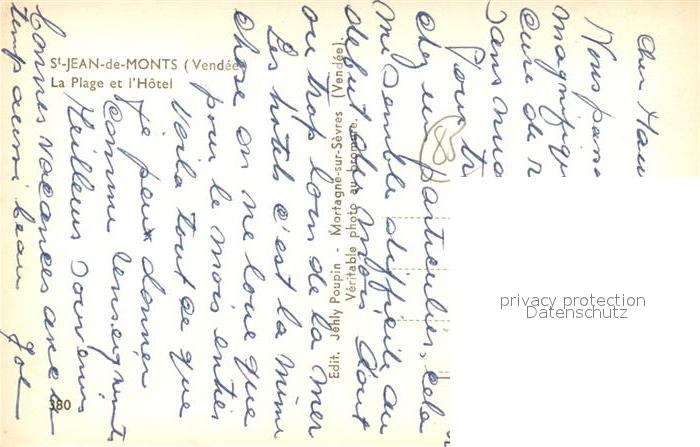 St-JEAN-de-MONTS (Vendée
La Plage et l'Hôtel
Edit. Jéhly Poupin - Mortagne-sur-Sèvres (Vendée).
Véritable photo au bromure.
380
privacy protection
Datenschutz
Nous pass
magnifiqu
cure de r
sans nua
Pour tr
chez un particulier, cela
me semble difficile au
debut du mois d'aout
ou trop loin de la mer
Les hotels c'est la même
chose on ne loue que
pour le mois entier
Voila tout ce que
je peux donner
comme renseignements
Meilleurs souvenirs
bonnes vacances avec un
temps aussi beau